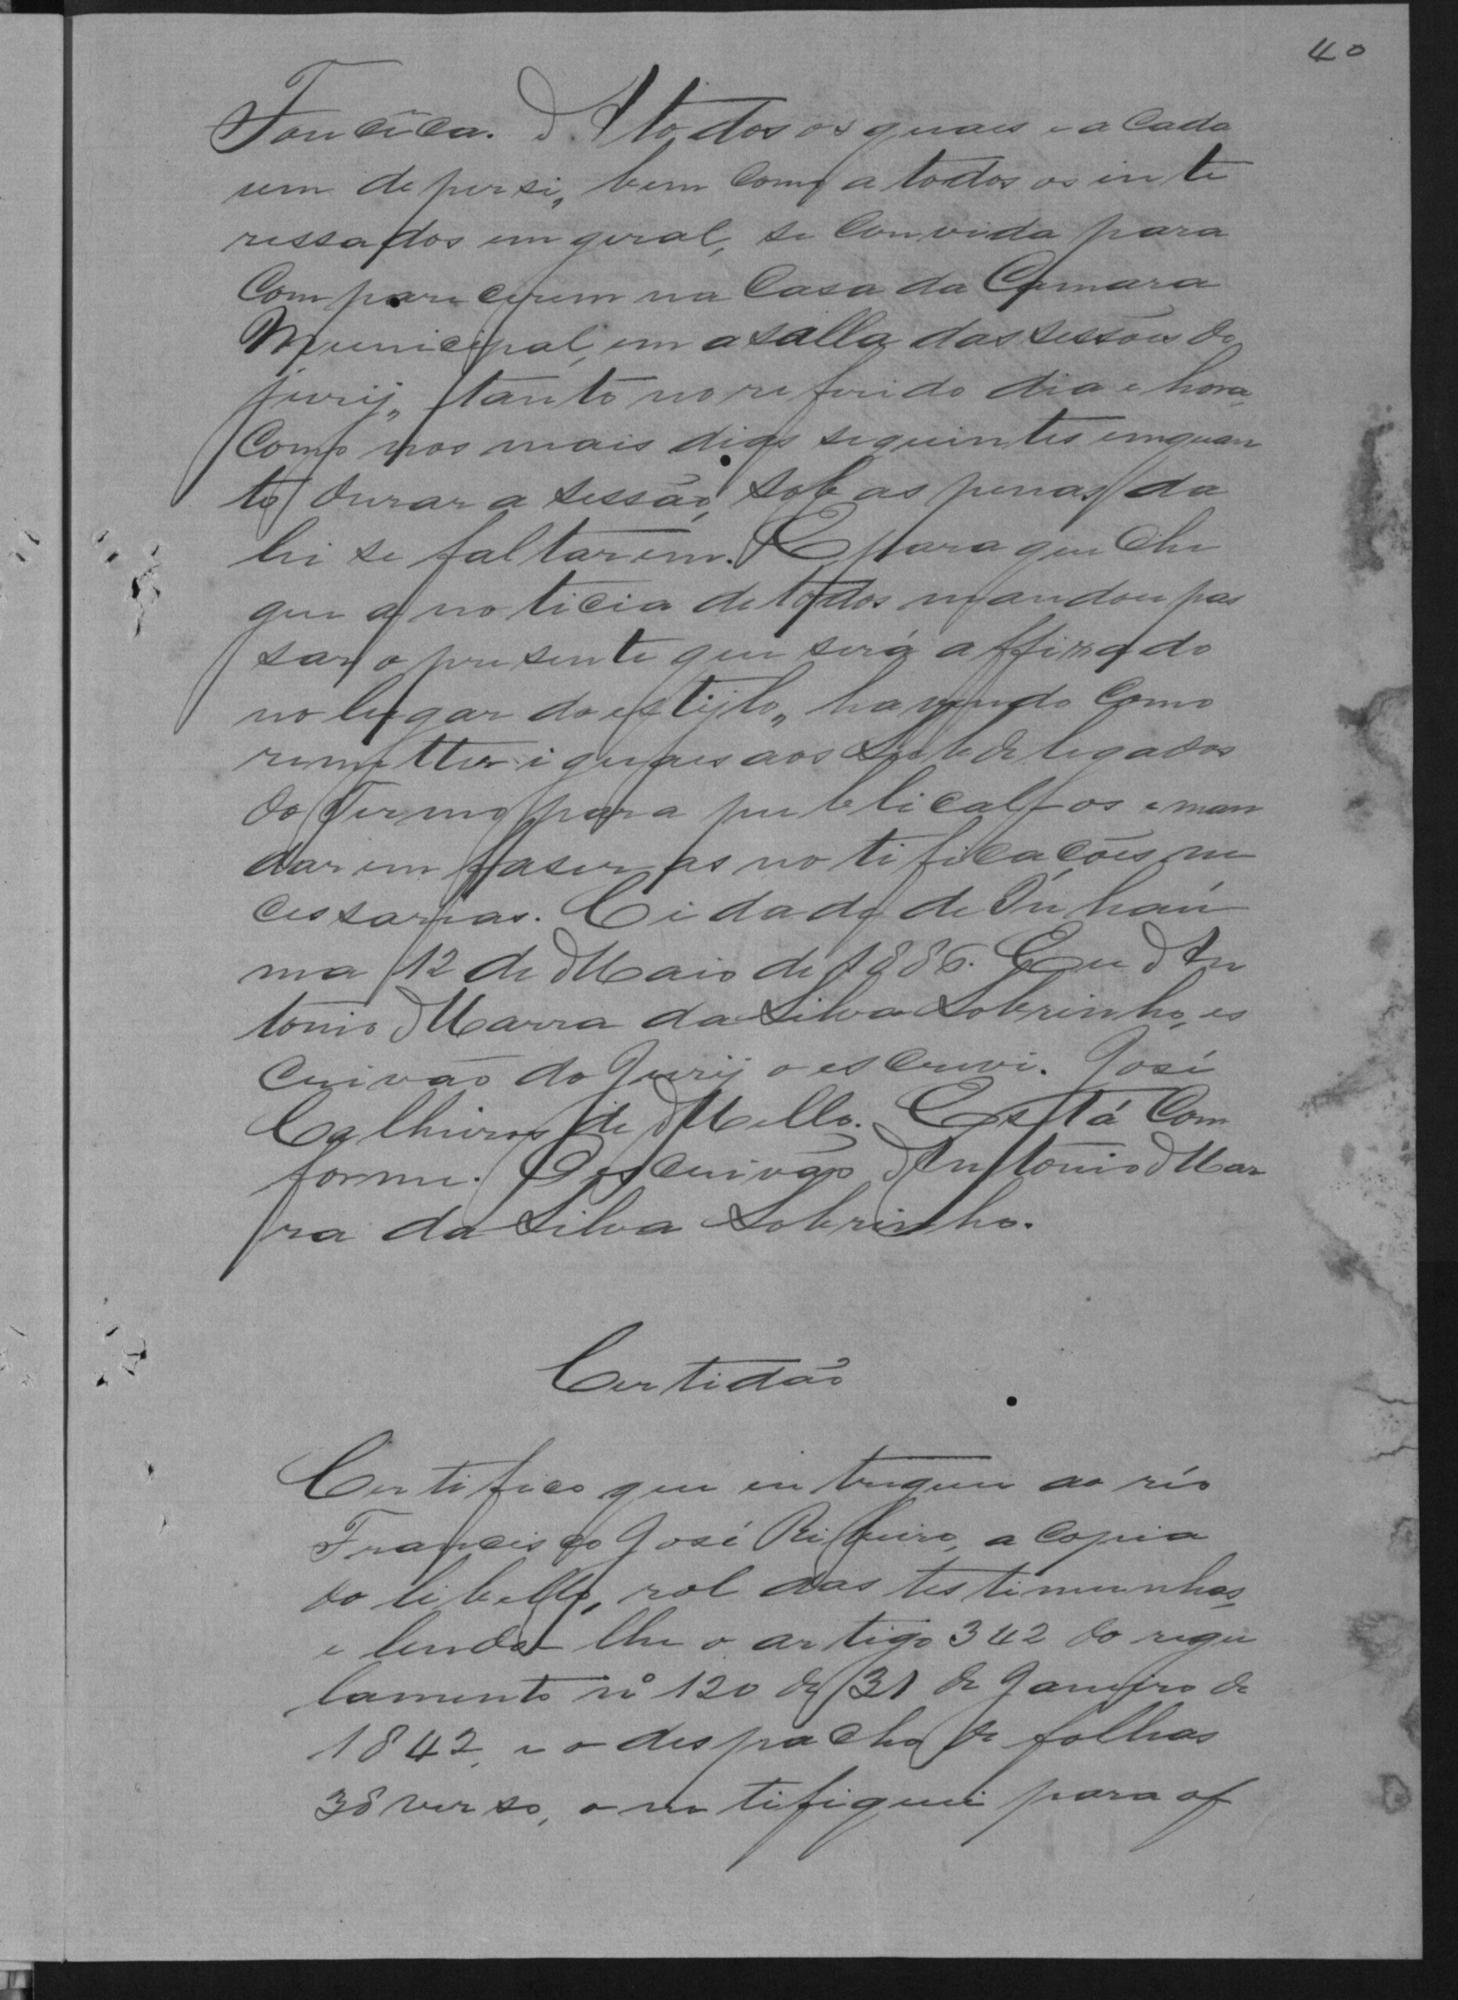 40
Foncêca. A todos os quaes e a cada
um de per si, bem como a todos os inte
ressados em geral, se convida para
comparecerem na Casa da Camara
Municipal, em a salla das sessões do
jury, tanto no referido dia e hora,
como nos mais dias seguintes emquan
to durar a sessão, sob as penas da
lei se faltarem. E para que che
gue a noticia de todos mandou pas
sar o presente que será affixado
no lugar do estylo, havendo como
remetter iguaes aos Subdelegados
do Termo para publical-os e man
darem faser as notificações ne
cessarias. Cidade de Inhaú
ma 12 de Maio de 1886. Eu An
tonio Marra da Silva Sobrinho, es
crivão do Jury o escrevi. José
Calheiros de Mello. Está con
forme. O escrivão Antonio Mar
ra da Silva Sobrinho.
Certidão
Certifico que entreguei ao réo
Francisco José Ribeiro, a copia
do libello, rol das testimunhas,
e lendo-lhe o artigo 342 do regu
lamento nº 120 de 31 de Janeiro de
1842, e o despacho de folhas
38 verso, o notifiquei para of